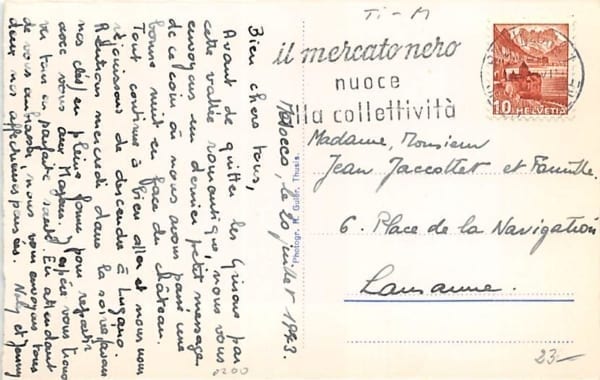 Ti-M
il mercato nero
nuoce
alla collettività
10 HELVETIA
Mesocco, le 20 juillet 1943.
Bien chers tous,
Avant de quitter les Grisons par
cette vallée romantique, nous vous
envoyons un dernier petit message
de ce coin où nous avons passé une
bonne nuit en face du château.
Tout continue à bien aller et nous nous
réjouissons de descendre à Lugano.
Attention mercredi dans la soirée
nos clefs en pleine forme pour repartir
avec vous aux Mayens. J'espère vous trouver
tous en parfaite santé. En attendant
de vous embrasser, nous vous envoyons tous
deux nos affectueuses pensées. Nely et Jimmy
Photogr. K. Guler, Thusis
Madame, Monsieur
Jean Jaccottet et Famille.
6. Place de la Navigation
Lausanne.
0200
23-